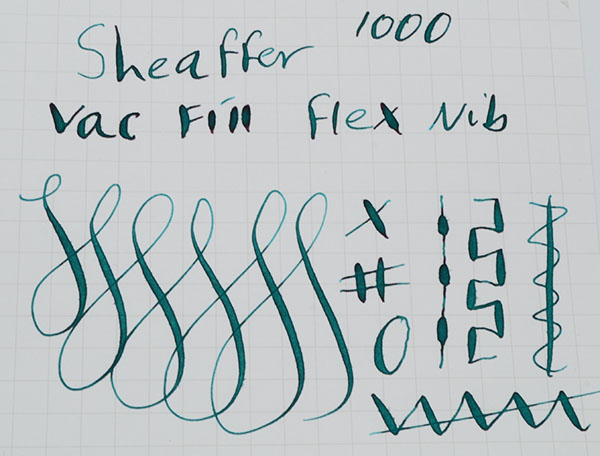 Sheaffer 1000
Vac Fill Flex Nib
X
#
O